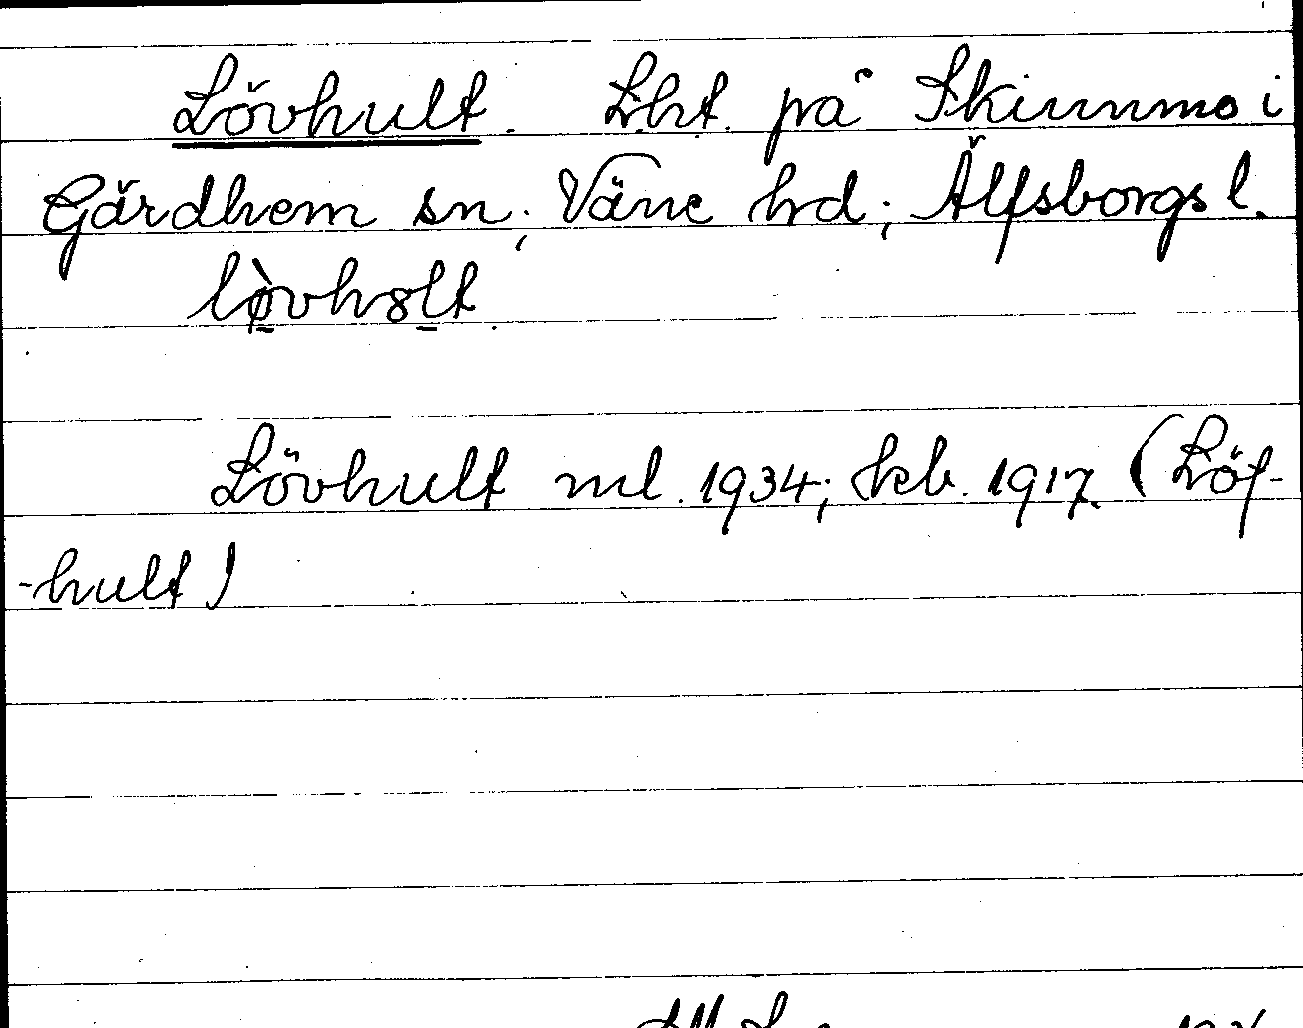 Lövhult. Lht. på Skinnmo i
Gärdhem sn; Väne hd; Älfsborgs l.
lø̀vhɷlt.
Lövhult ml. 1934; kb. 1917. (Löf-
-hult)